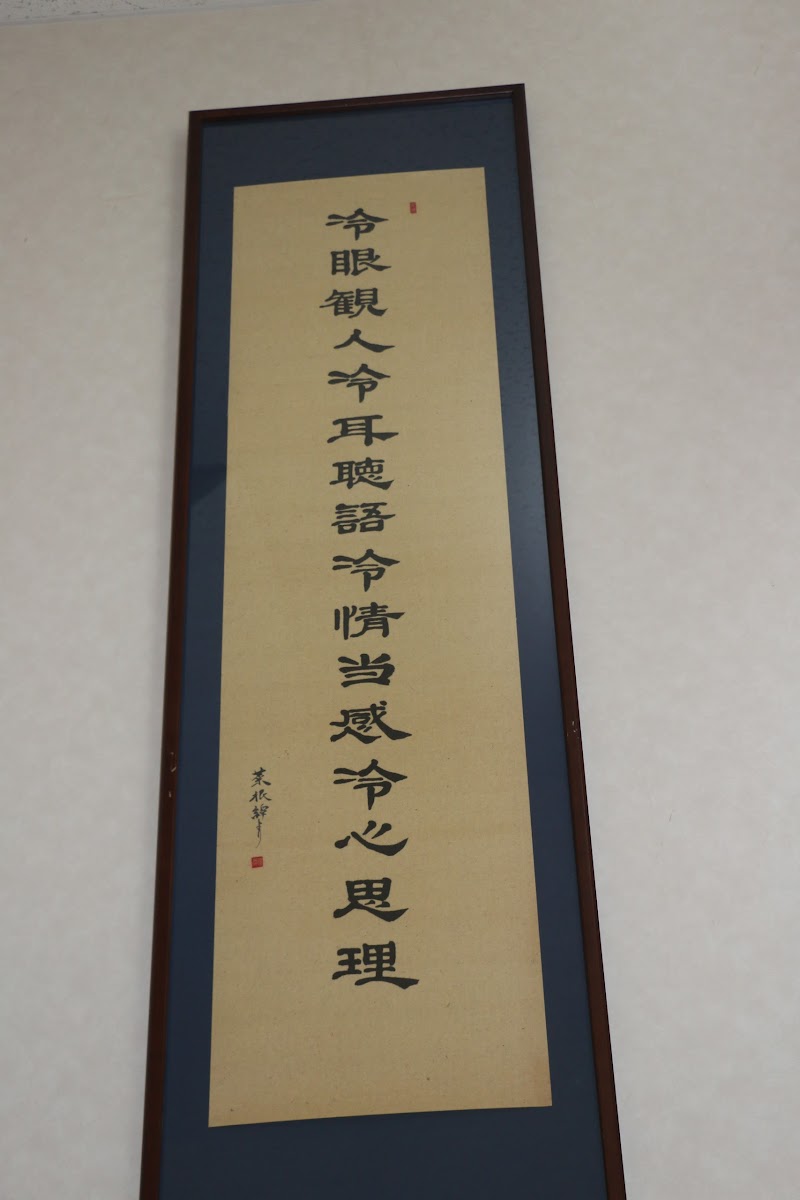 冷眼観人冷耳聴語冷情当感冷心思理
菜根譚